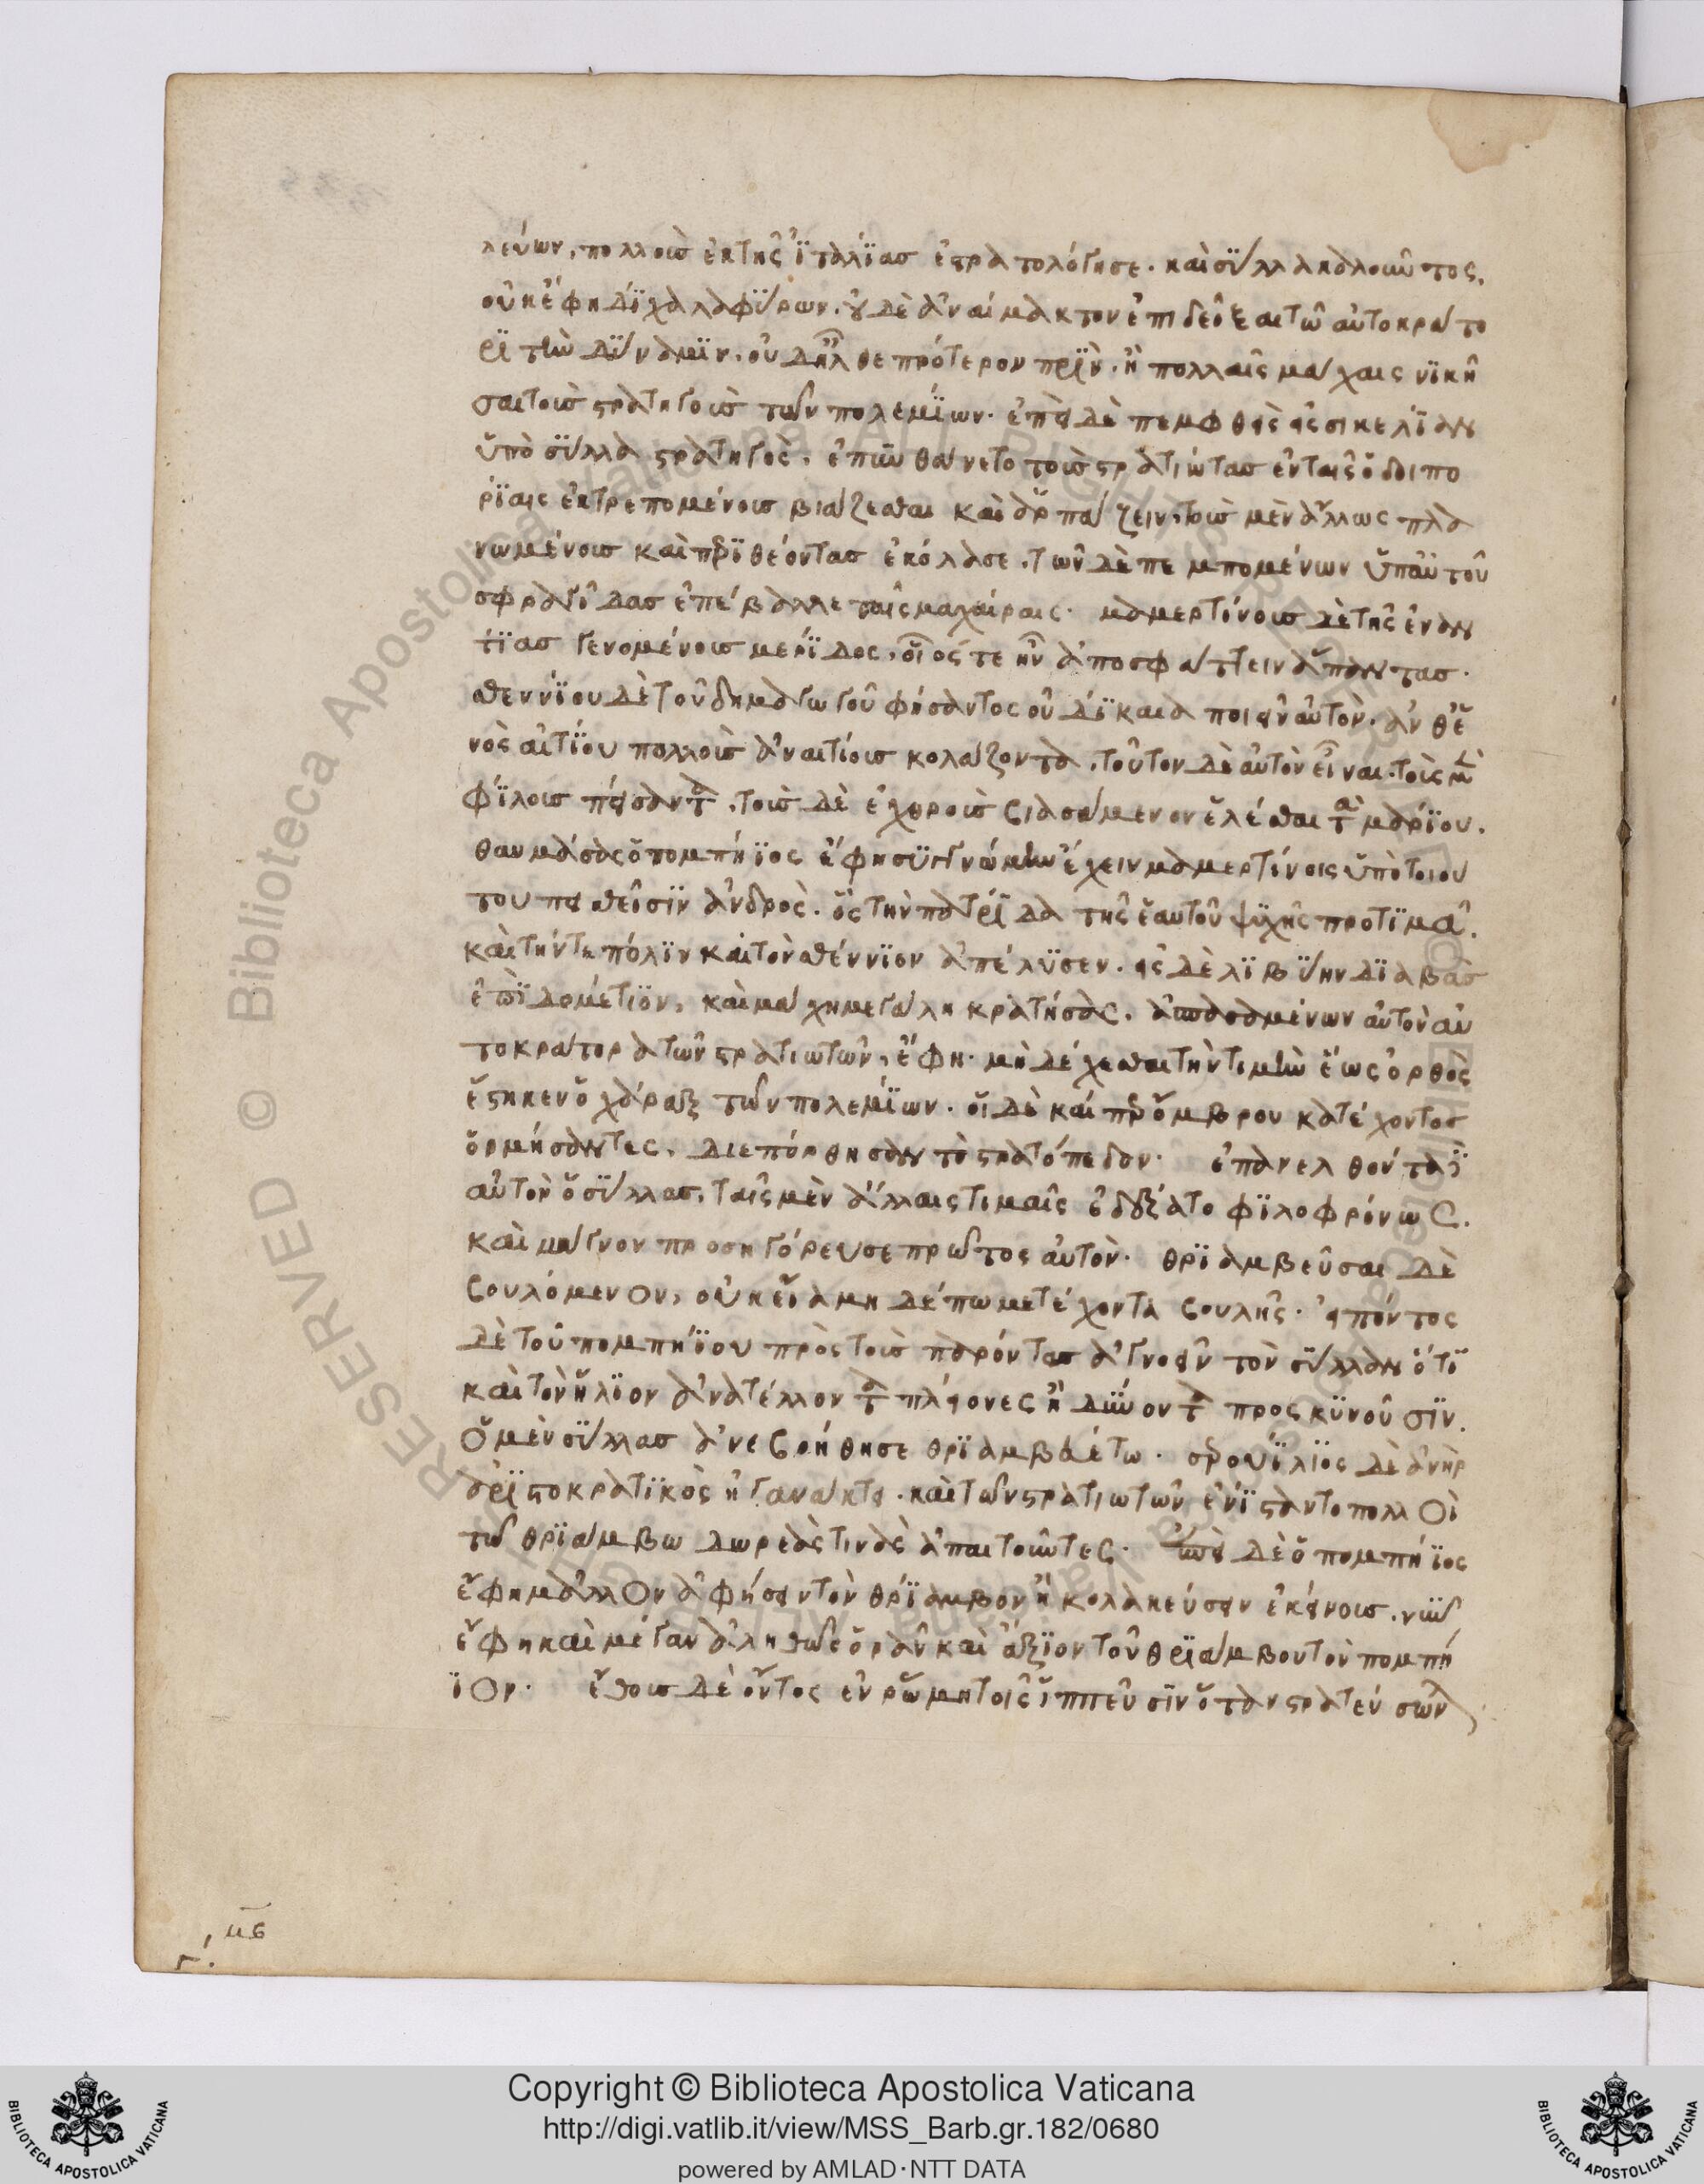 λεύων, πολλοὺς ἐκ τῆς ἰταλίας ἐστρατολόγησε. καὶ σύλλα καλοῦντος,
οὐκ ἔφη δίχα λαφύρων. οὐδὲ ἀναίμακτον ἐπιδεῖξαι τῶ αὐτοκράτο
ρι τὴν δύναμιν. οὐδ' ἦλθε πρότερον πρὶν. ἢ πολλαῖς μάχαις νικῆ
σαι τοὺς στρατηγοὺς τῶν πολεμίων. ἐπεὶ δὲ πεμφθεὶς εἰς σικελίαν
ὑπὸ σύλλα στρατηγὸς. ἐπυνθάνετο τοὺς στρατιώτας ἐν ταῖς ὁδοιπο
ρίαις ἐκτρεπομένους βιάζεσθαι καὶ ἁρπάζειν, τοὺς μὲν ἄλλως πλα
νωμένους καὶ περιθέοντας ἐκόλασε. τῶν δὲ πεμπομένων ὑπ' αὐτοῦ
σφραγῖδας ἐπέβαλλε ταῖς μαχαίραις. μαμερτίνους δὲ τῆς ἐναν
τίας γενομένους μερίδος, οἷός τε ἦν ἀποσφάττειν ἅπαντας.
σθεννίου δὲ τοῦ δημαγωγοῦ φήσαντος οὐ δίκαια ποιεῖν αὐτὸν. ἀνθ' ἑ
νὸς αἰτίου πολλοὺς ἀναιτίους κολάζοντα. τοῦτον δὲ αὐτὸν εἶναι. τοὺς μὲν
φίλους πείσαντα. τοὺς δὲ ἐχθροὺς βιασάμενον ἑλέσθαι τὰ μαρίου.
θαυμάσας ὁ πομπήϊος ἔφη συγγνώμην ἔχειν μαμερτίνοις ὑπὸ τοιού
του πεισθεῖσιν ἀνδρὸς. ὃς τὴν πατρίδα τῆς ἑαυτοῦ ψυχῆς προτιμᾶ.
καὶ τήν τε πόλιν καὶ τὸν σθέννιον ἀπέλυσεν. εἰς δὲ λιβύην διαβὰς
ἐπὶ δομέτιον, καὶ μάχη μεγάλη κρατήσας. ἀσπασαμένων αὐτὸν αὐ
τοκράτορα τῶν στρατιωτῶν, ἔφη. μὴ δέχεσθαι τὴν τιμὴν ἕως ὀρθὸς
ἕστηκεν ὁ χάραξ τῶν πολεμίων. οἱ δὲ καίπερ ὄμβρου κατέχοντος
ὁρμήσαντες, διεπόρθησαν τὸ στρατόπεδον. ἐπανελθόντα
αὐτὸν ὁ σύλλας. ταῖς μὲν ἄλλαις τιμαῖς ἐδέξατο φιλοφρόνως.
καὶ μάγνον προσηγόρευσε πρῶτος αὐτὸν. θριαμβεῦσαι δὲ
βουλόμενον, οὐκ εἴα μηδέπω μετέχοντα βουλῆς. εἰπόντος
δὲ τοῦ πομπηΐου πρὸς τοὺς παρόντας ἀγνοεῖν τὸν σύλλαν ὅτι
καὶ τὸν ἥλιον ἀνατέλλοντα πλείονες ἢ δύνοντα προσκυνοῦσιν.
ὁ μὲν σύλλας ἀνεβοήθησε θριαμβαέτω. σερουίλιος δὲ ἀνὴρ
ἀριστοκρατικὸς ἠγανάκτει. καὶ τῶν στρατιωτῶν ἐνίσταντο πολλοὶ
τῶ θριάμβω δωρεάς τινας ἀπαιτοῦντες. δὲ ὁ πομπήϊος
ἔφη μᾶλλον ἀφήσειν τὸν θρίαμβον ἢ κολακεύσειν ἐκείνους. νῦν
ἔφη καὶ μέγαν ἀληθῶς ὁρᾶν καὶ ἄξιον τοῦ θριάμβου τὸν πομπή
ϊον. ἔθους δὲ ὄντος ἐν ῥώμη τοῖς ἱππεῦσιν ὅταν στρατεύσων
μϛ